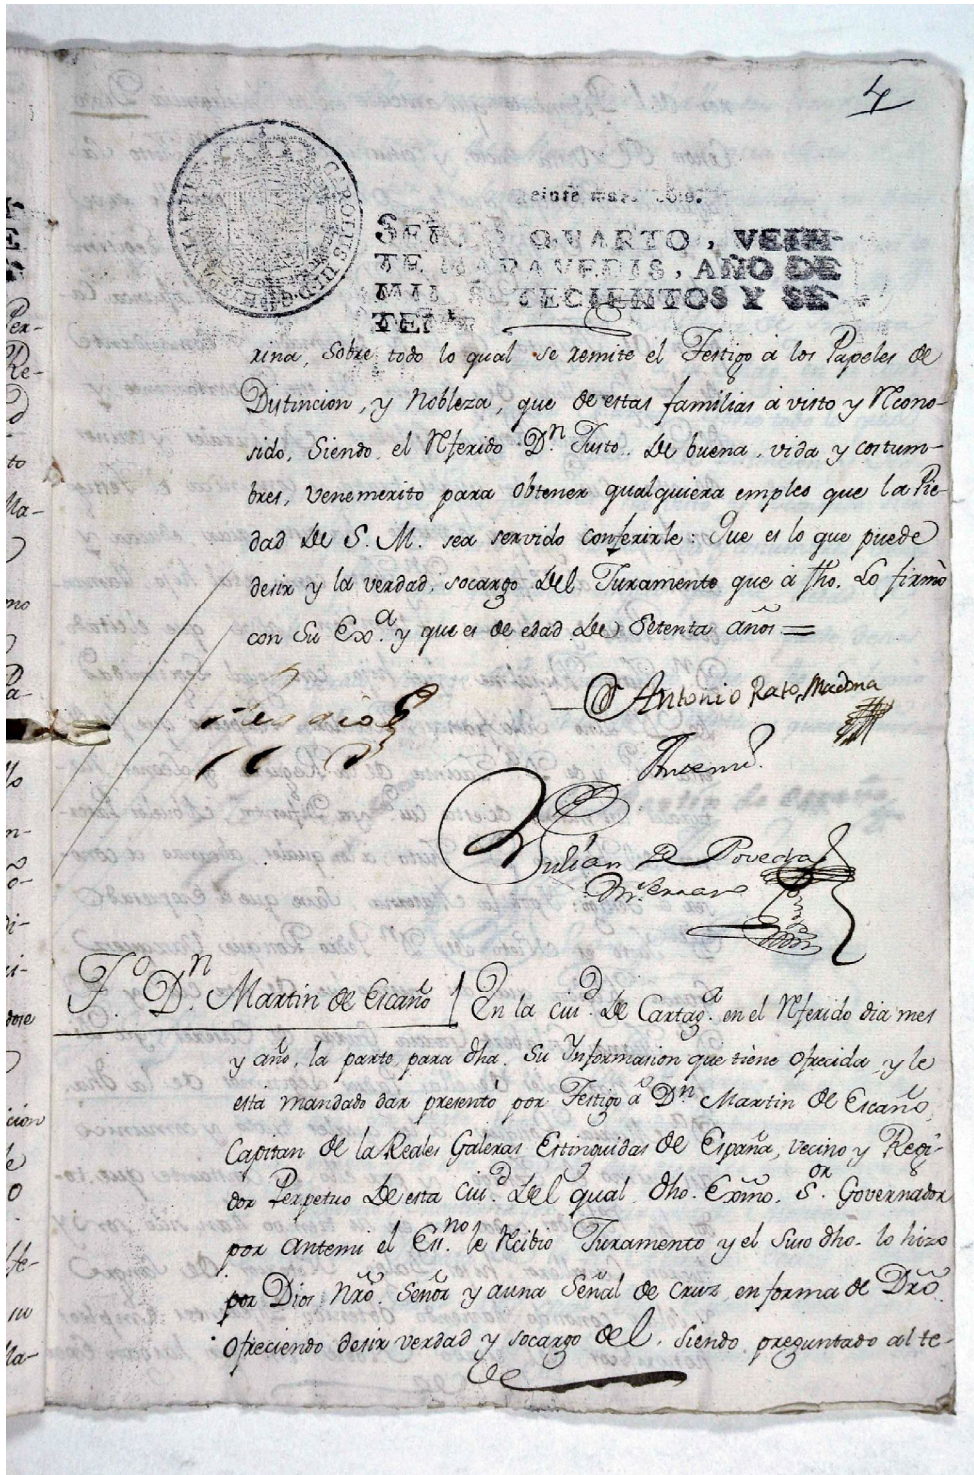 4
CAROLUS III D G HISPANIAR REX
SELLO QVARTO, VEIN-
TE MARAVEDIS, AÑO DE
MIL SETECIENTOS Y SE-
TENTA
rina, Sobre todo lo qual se remite el Testigo â los Papeles de
Distincion, y Nobleza, que de estas familias à visto y Rcono-
sido, Siendo el Rferido Dn. Justo de buena vida y costum-
bres, venemerito para obtener qualquiera empleo que la Pie-
dad de S. M. sea servido conferirle: Que es lo que puede
desir y la verdad, socargo del Juramento que à fho. Lo firmò
con Su Exa. y que es de edad de Setenta años =
Dn Antonio Rato, Madona
Antemi.
Julian de Poveda
Tº. Dn. Martin de Escaño En la ciud. de Cartaga. en el Rferido dia mes
y año, la parte, para dha. Su Informasion que tiene ofrecida, y le
està mandado dar presentò por Testigo â Dn. Martin de Escaño,
Capitan de la Reales Galeras Estinguidas de España, vecino y Regi-
dor Perpetuo de esta ciud. del qual dho. Exmo. Sor. Governador
por antemi el Essno. le Rcibio Juramento y el Suso dho. lo hizo
por Dios Nro. Señor y auna Señal de Cruz en forma de Dro.
Ofreciendo desir verdad y socargo del, siendo preguntado al te-